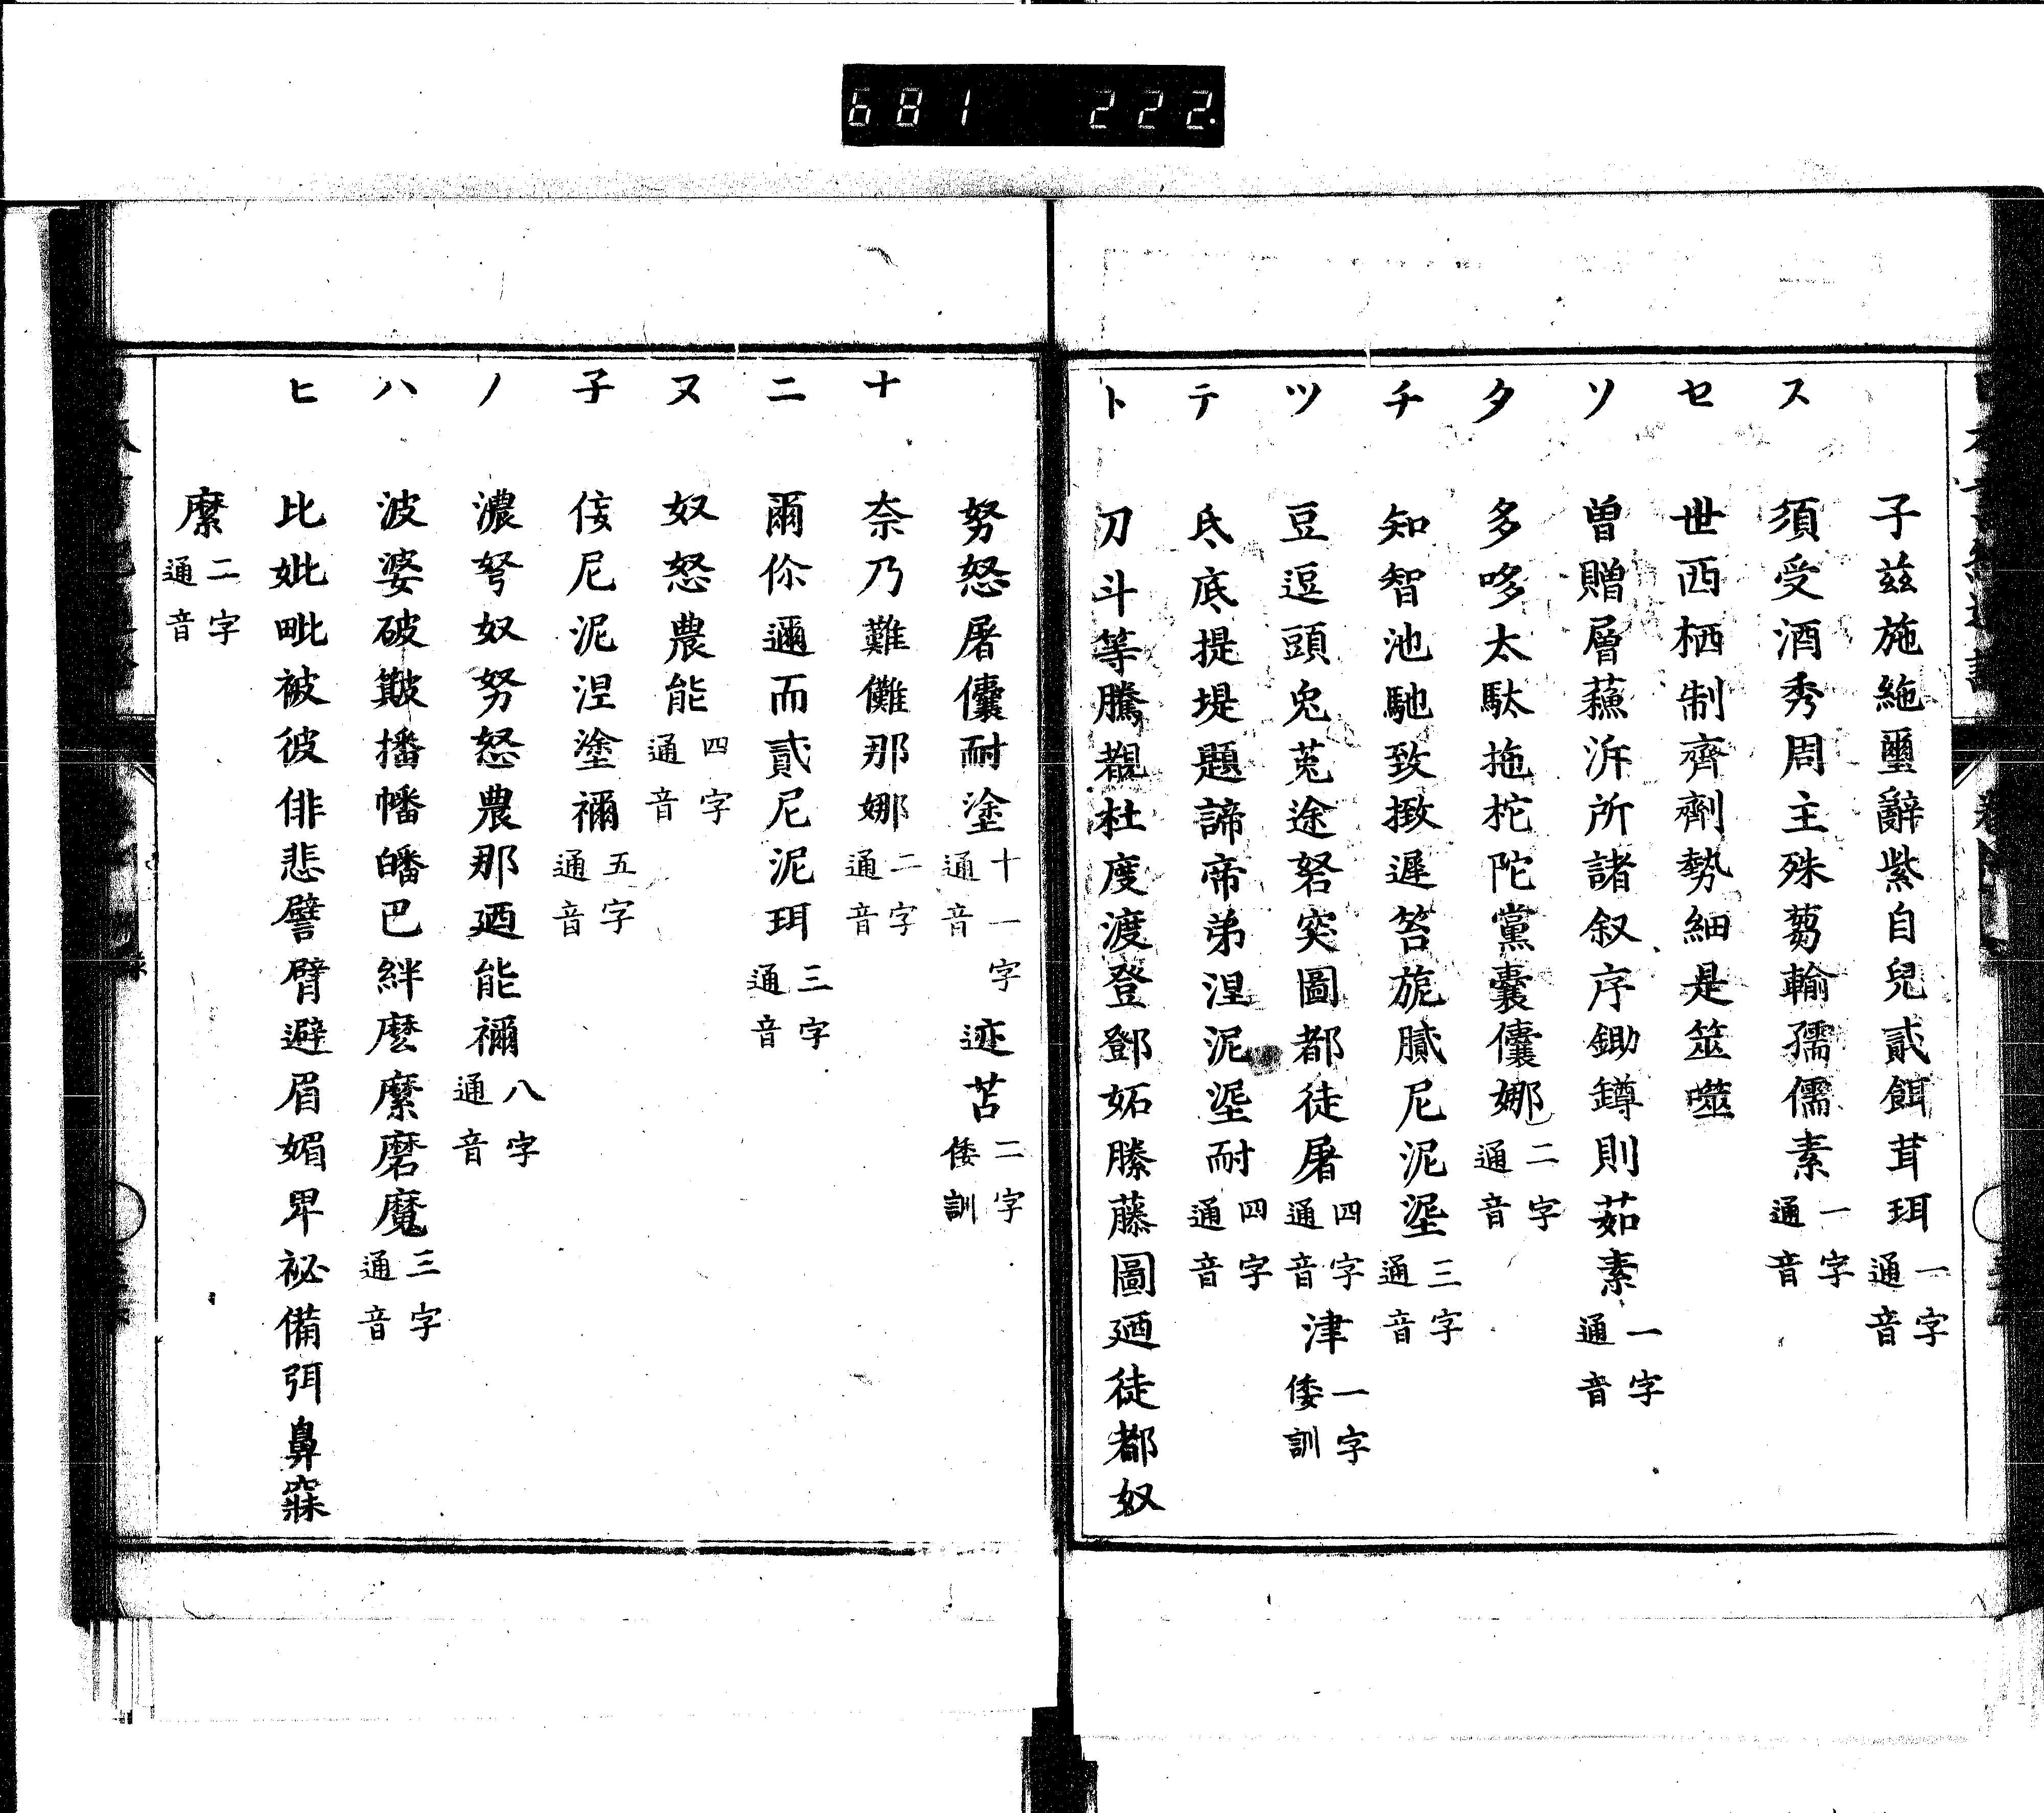 681 222
子兹施絁璽辭紫自兒貳餌茸珥一字通音
ス 須受酒秀周主殊蒭輸孺儒素一字通音
セ 世西栖制齊劑勢細是筮噬
ソ 曽贈層蘓泝所諸叙序鋤鐏則茹素一字通音
タ 多哆太駄拖柁陀黨囊儾娜二字通音
チ 知智池馳致緻遲笞旎膩尼泥埿三字通音
ツ 豆逗頭兎莵途砮突圖都徒屠四字通音津一字倭訓
テ 氐底提堤題諦帝弟涅泥埿耐四字通音
ト 刀斗等騰覩杜度渡登鄧妬滕藤圖廼徒都奴
努怒屠儾耐塗十一字通音迹苫二字倭訓
ナ 奈乃難儺那娜二字通音
ニ 爾伱邇而貳尼泥珥三字通音
ヌ 奴怒農能四字通音
子 尼泥涅塗禰五字通音
ノ 濃弩奴努怒農那廼能禰八字通音
ハ 波婆破簸播幡皤巴絆麽縻磨魔三字通音
ヒ 比妣毗被彼俳悲譬臂避眉媚卑祕備弭鼻寐
縻二字通音